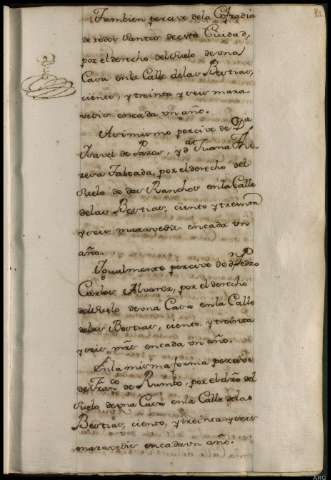 Tambien percive de la Cofradia
de todos Santos de esta Ciudad,
por el derecho del suelo de una
Casa en la Calle de las Bestias,
ciento, y treinta y seis mara-
vedis en cada un año.
Asimismo percive de D.ª
Isavel de y D.ª Juana
Taboada, por el derecho del
suelo de dos Ranchos en la Calle
de las Bestias, ciento y treinta
y seis maravedis en cada un
año.
Igualmente percive de D.n Pedro
Carlos Alvarez, por el derecho
del suelo de una Casa en la Calle
de las Bestias, ciento, y treinta
y seis mrs en cada un año.
En la misma forma percive
de Fran.co de Rumbo, por el dro del
suelo de una Casa en la Calle de las
Bestias, ciento, y treinta y seis
maravedis en cada un año.